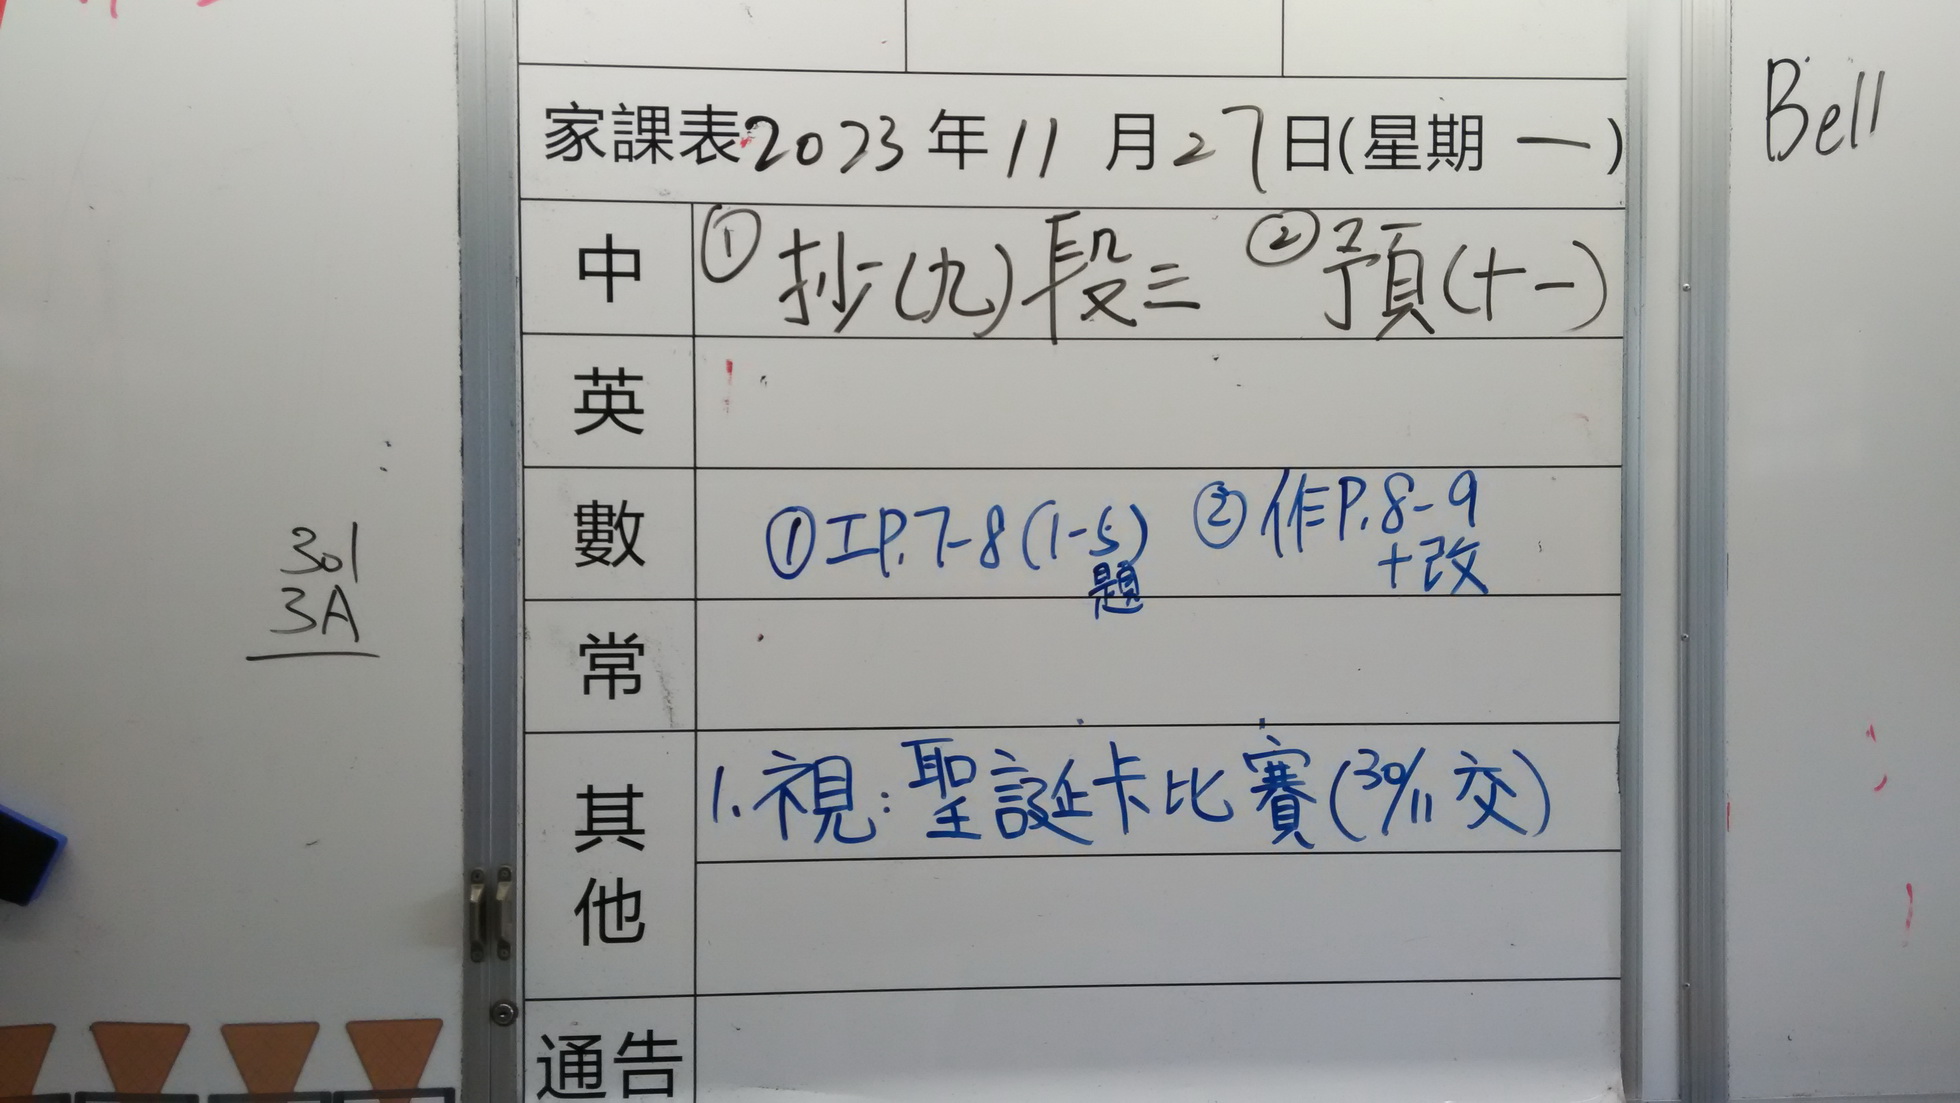 家課表2023年11月27日(星期一)
中 ①抄(九)段三 ②預(十一)
英
數 ①工P.7-8(1-5)題 ②作P.8-9+改
常
其他 1.視:聖誕卡比賽(30/11交)
通告
301
3A
Bell